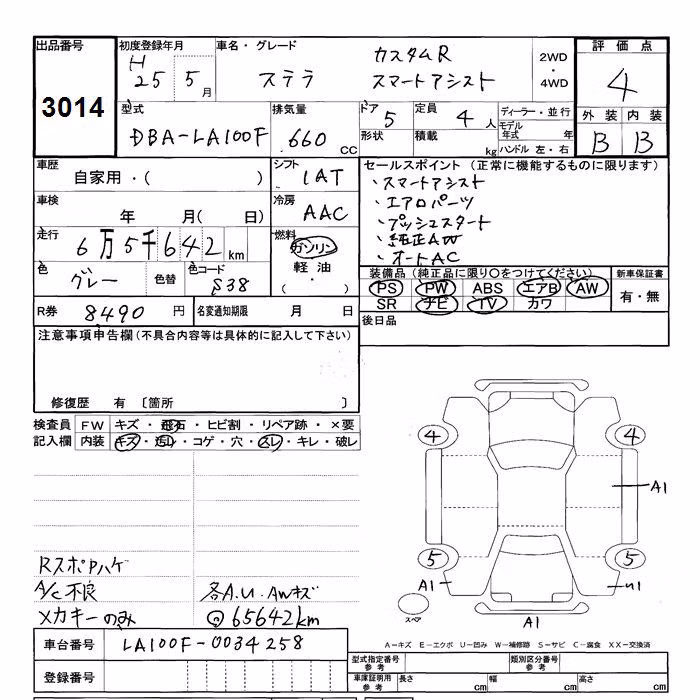 出品番号
3014
初度登録年月
H
25 5月
車名・グレード
ステラ
カスタムR
スマートアシスト
2WD
・
4WD
評価点
4
外装 内装
B B
型式
DBA-LA100F
排気量
.660 CC
ドア
5
定員
4人
形状
積載
kg
ディーラー・並行
モデル
年式 年
ハンドル 左・右
車歴
自家用・( )
シフト
1AT
車検
年 月( 日)
冷房
AAC
走行
6万5千642km
燃料
ガソリン
軽油
( ・ )
色
グレー
色替
色コード
S38
R券 8490円
名変通知期限 月 日
セールスポイント (正常に機能するものに限ります)
・スマートアシスト
・エアロパーツ
・プッシュスタート
・純正AW
・オートAC
装備品(純正品に限り○をつけてください)
PS PW ABS エアB AW
SR ナビ TV カワ
新車保証書
有・無
後日品
注意事項申告欄(不具合内容等は具体的に記入して下さい)
修復歴 有 〔箇所 〕
検査員
記入欄
FW キズ・飛石・ヒビ割・リペア跡・×要
内装 キズ・汚レ・コゲ・穴・スレ・キレ・破レ
Rスポハゲ
A/C不良
各A.U. AWキズ
メカキーのみ
@65642km
4 4
A1
5 5
A1 U1
スペア
A1
A−キズ E−エクボ U−凹み W−補修跡 S−サビ C−腐食 XX−交換済
車台番号 LA100F-0034258
登録番号
型式指定番号
参考
類別区分番号
参考
車庫証明用
参考
長さ cm
幅 cm
高さ cm